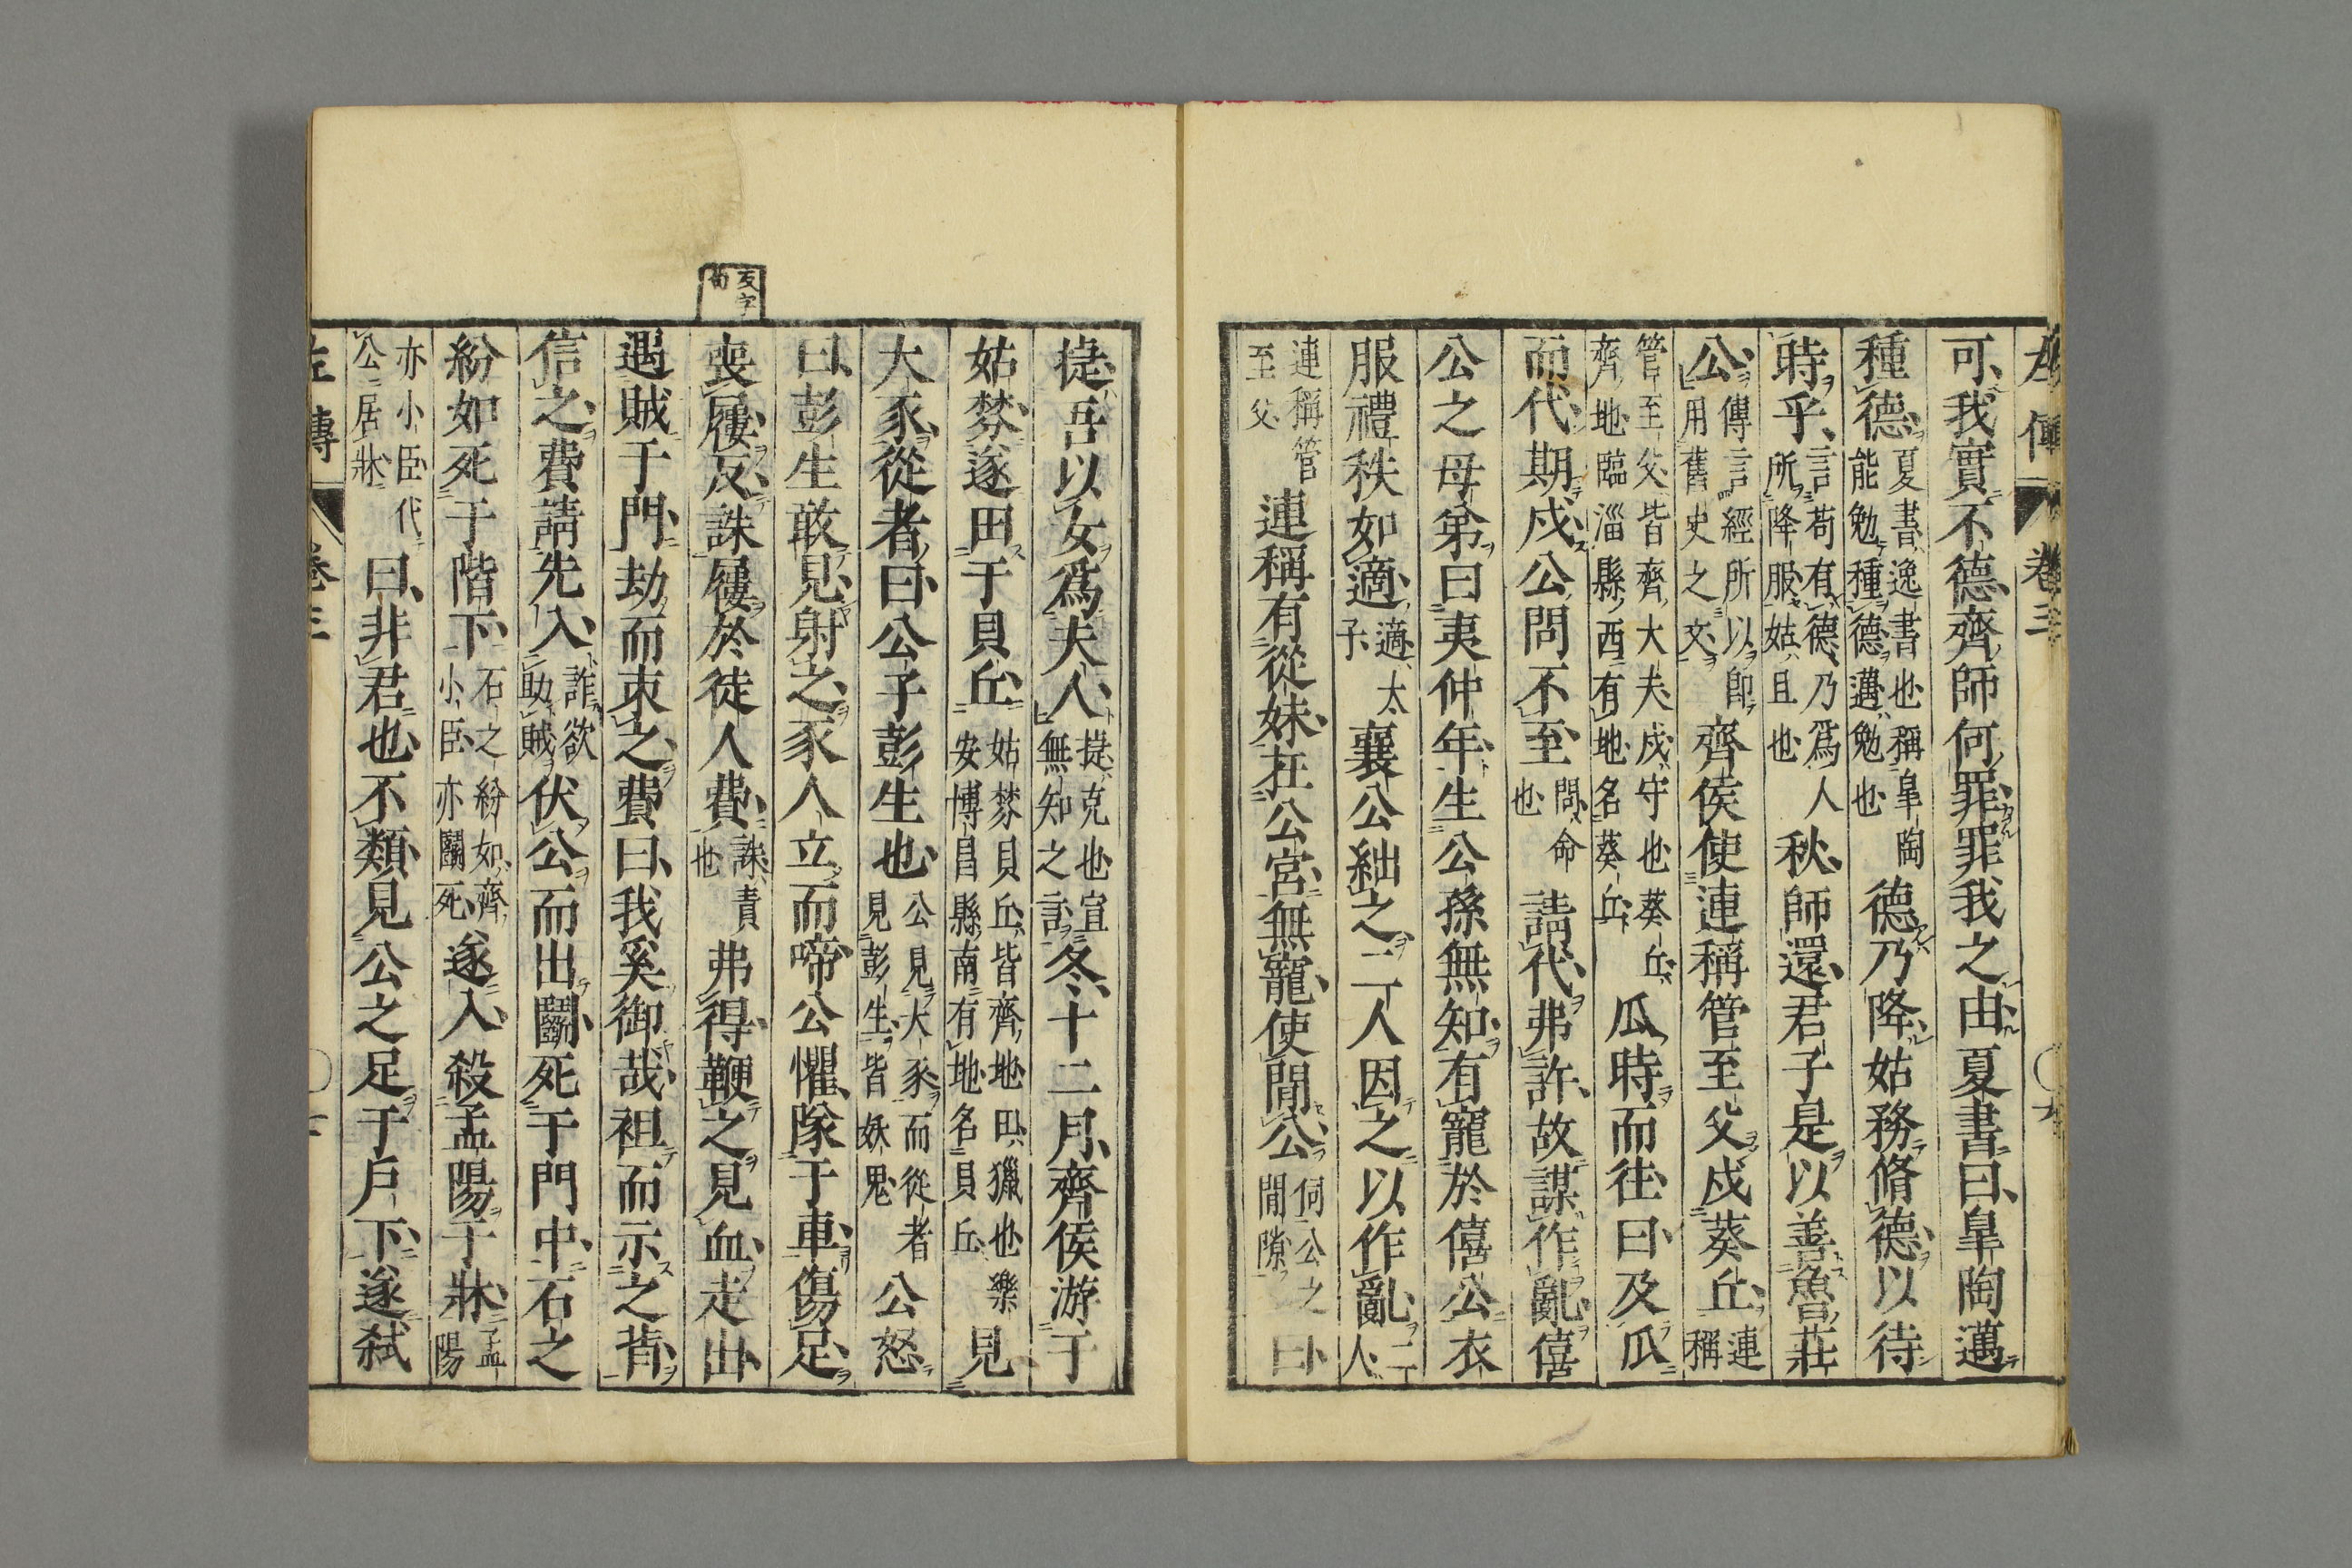 左傳 卷三
可我實不德齊師何罪罪我之由夏書曰皐陶邁
種德夏書逸書也稱皐陶能勉種德邁勉也德乃降姑務脩德以待
時乎言苟有德乃爲人所降服姑且也秋師還君子是以善魯莊
公傳言經所以卽用舊史之文齊侯使連稱管至父戍葵丘連稱
管至父皆齊大夫戍守也葵丘齊地臨淄縣西有地名葵丘瓜時而往曰及瓜
而代期戍公問不至問命也請代弗許故謀作亂僖
公之母弟曰夷仲年生公孫無知有寵於僖公衣
服禮秩如適適太子襄公絀之二人因之以作亂二人
連稱管至父連稱有從妹在公宮無寵使閒公伺公之閒隙曰
捷吾以女爲夫人捷克也宣無知之言冬十二月齊侯游于
姑棼遂田于貝丘姑棼貝丘皆齊地田獵也樂安博昌縣南有地名貝丘見
大豕從者曰公子彭生也公見大豕而從者見彭生皆妖鬼公怒
曰彭生敢見射之豕人立而啼公懼隊于車傷足
喪屨反誅屨於徒人費誅責也弗得鞭之見血走出
遇賊于門劫而束之費曰我奚御哉袒而示之背
信之費請先入詐欲助賊伏公而出鬭死于門中石之
紛如死于階下石之紛如齊小臣亦鬭死遂入殺孟陽于牀孟陽
亦小臣代公居牀曰非君也不類見公之足于戶下遂弑
左傳 卷三